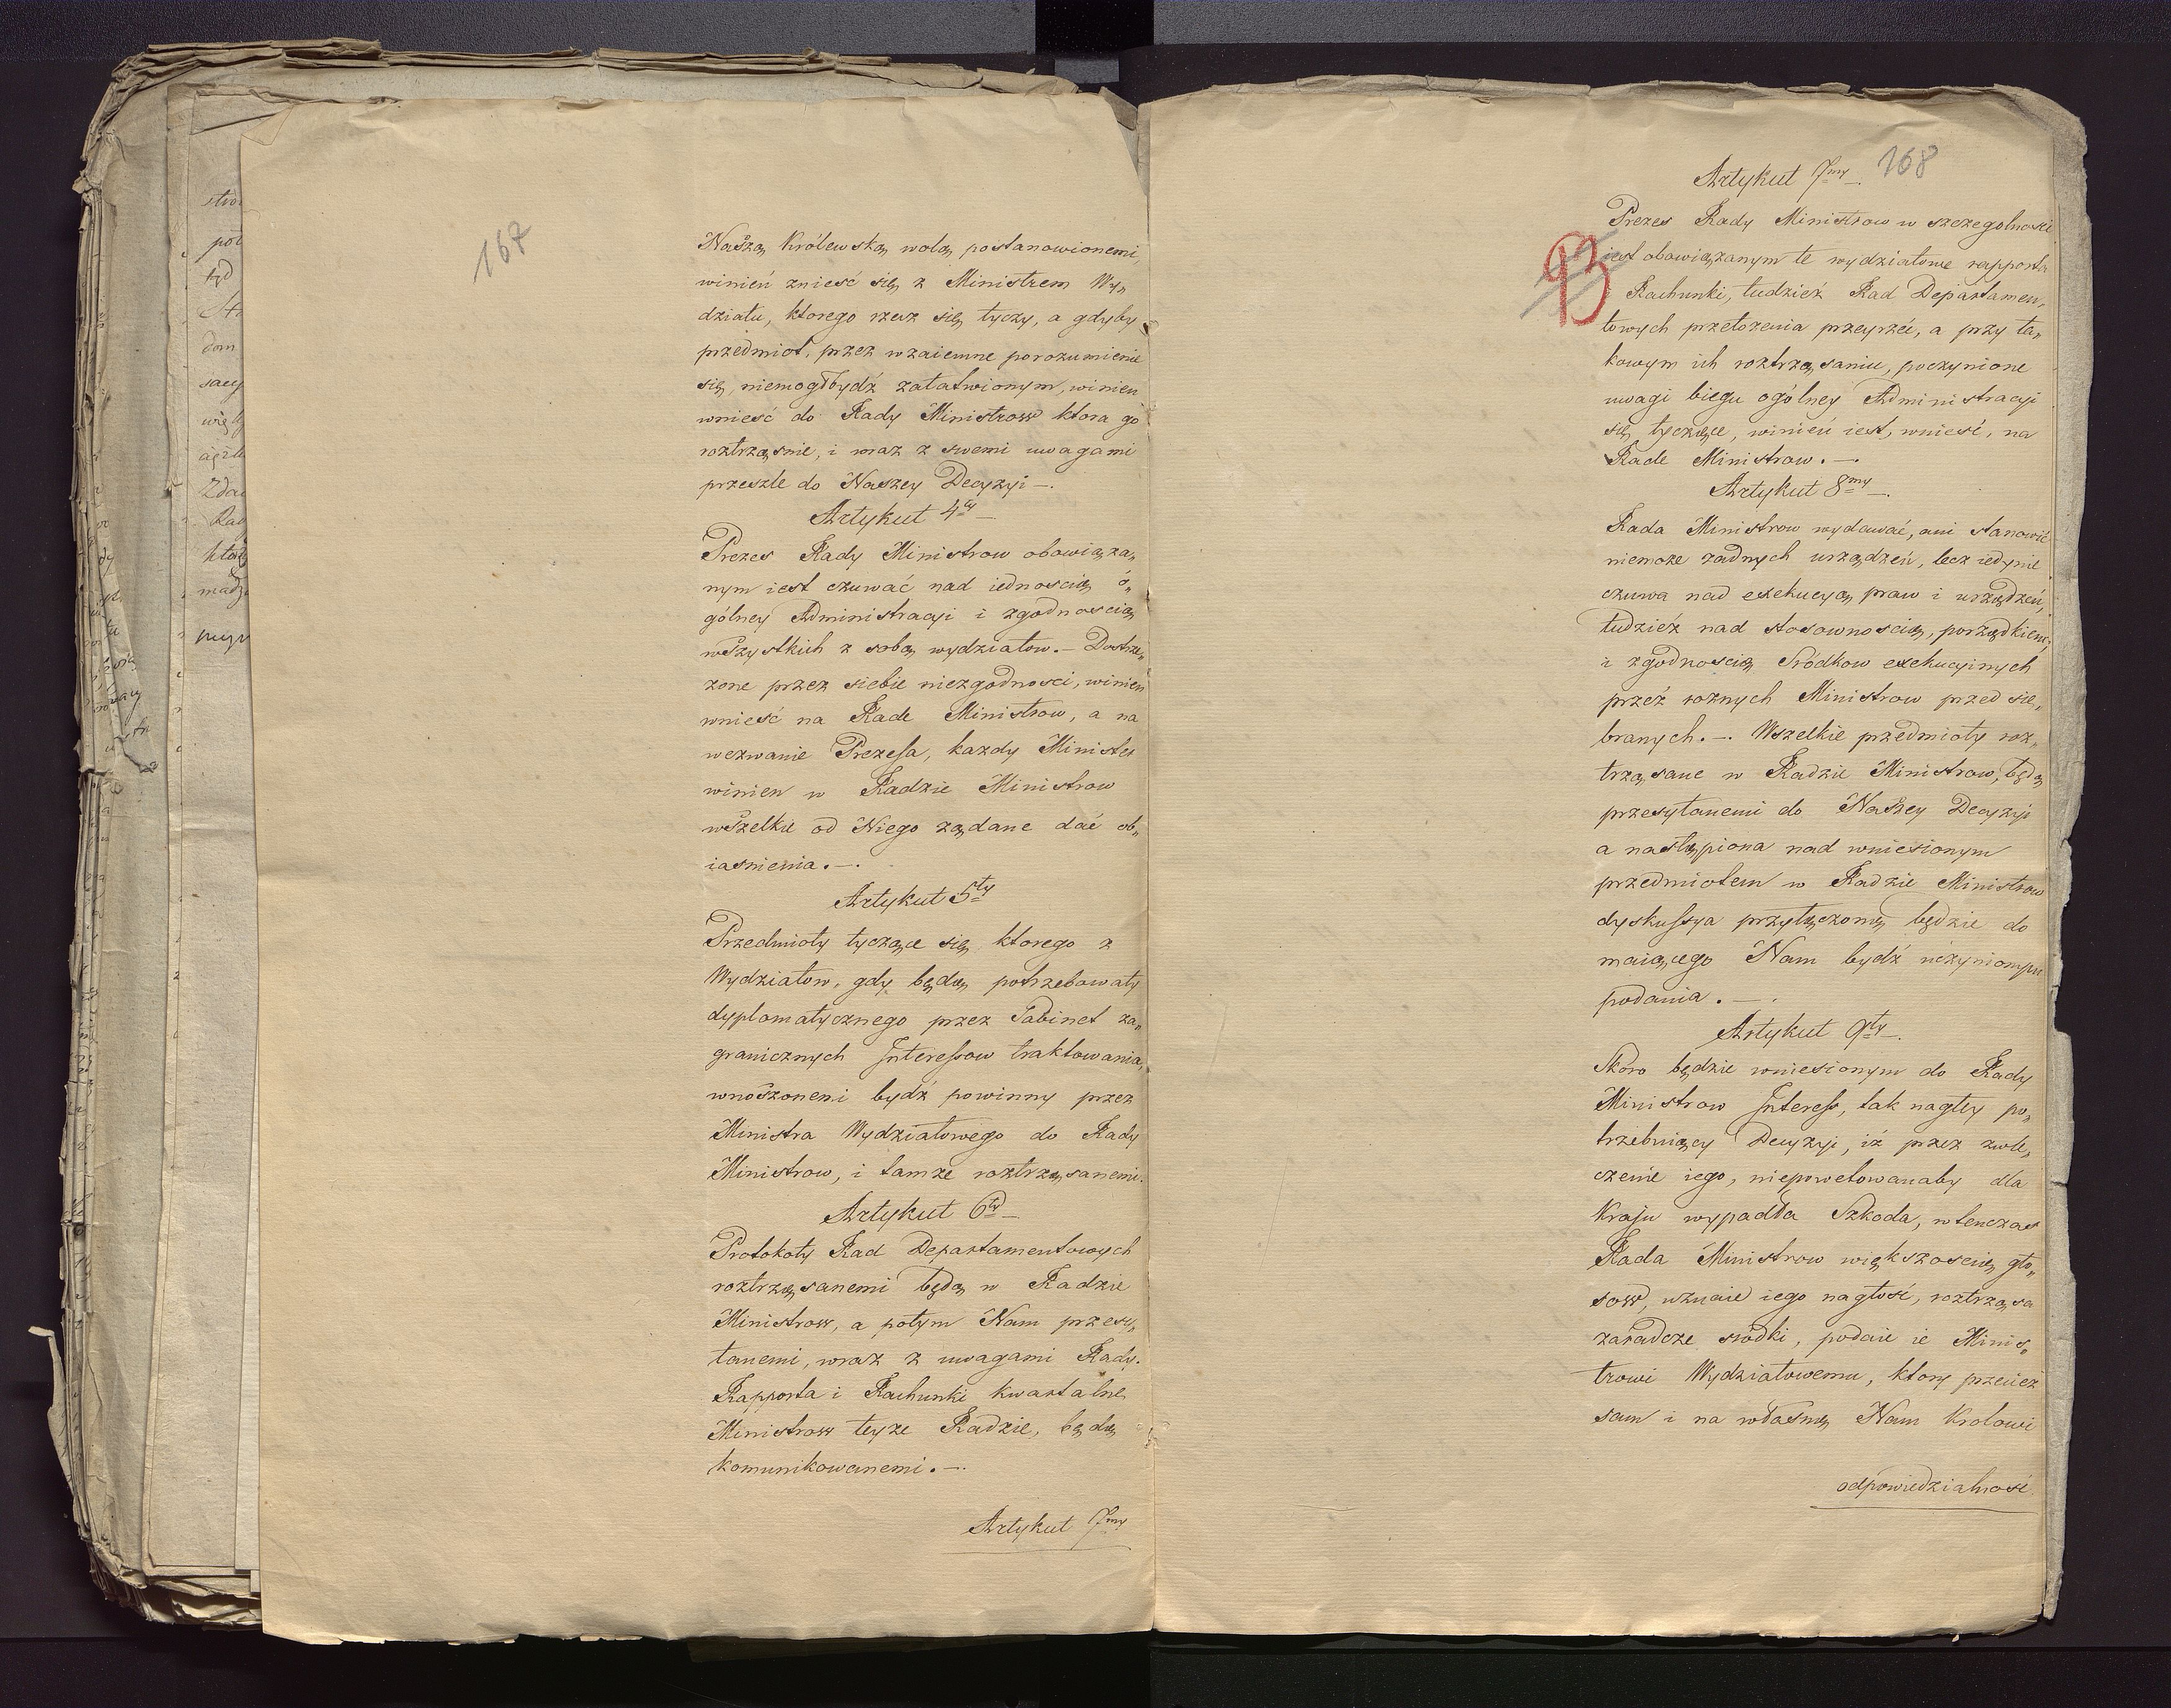 167
Naszą Królewską wolą postanowionemi,
winień znieść się z Ministrem Wy„
działu, ktorego rzecz się tyczy, a gdyby
przedmiot, przez wzaiemne porozumienie
się, niemogł bydź załatwionym, winien
wnieść do Rady Ministrow ktora go
roztrząsnie, i wraz z swemi uwagami
przeszle do Naszey Decyzyi —.
Artykuł 4ty —
Prezes Rady Ministrow obowiąza„
nym iest czuwać nad iednoscią o„
gólney Administracyi i zgodnoscią
wszystkich z sobą wydziałow. — Dostrze„
zone przez siebie niezgodnosci, winien
wnieść na Rade Ministrow, a na
wezwanie Prezesa, kazdy Minister
winien w Radzie Ministrow
wszelkie od Niego ządane dać ob„
iasnienia. —.
Artykuł 5ty
Przedmioty tyczące się ktorego z
Wydziałow, gdy będą potrzebowały
dyplomatycznego przez Gabinet za„
granicznych Interessow traktowania,
wnoszonemi bydź powinny przez
Ministra Wydziałowego do Rady
Ministrow, i tamze roztrząsanemi.
Artykuł 6ty —
Protokoły Rad Departamentowych
roztrząsanemi będą w Radzie
Ministrow, a potym Nam przesy„
łanemi, wraz z uwagami Rady.
Rapporta i Rachunki kwartalne
Ministrow teyze Radzie, będą
komunikowanemi. —.
Artykuł 7my
168
Artykuł 7my —.
93
Prezes Rady Ministrow w szczegolnosci
iest obowiązanym te wydziałowe rapporta
Rachunki, tudzież Rad Departamen„
towych przełozenia przeyrzeć, a przy ta„
kowym ich roztrząsaniu, poczynione
uwagi biegu ogólney Administracyi
się tyczące, winień iest, wnieść, na
Rade Ministrow. —.
Artykuł 8my —.
Rada Ministrow wydawać, ani stanowić
niemoze zadnych urządzeń, lecz iedynie
czuwa nad exekucyą praw i urządzeń,
tudzież nad stosownoscią, porządkiem,
i zgodnoscią Sródkow exekucyinych
przeż roznych Ministrow przed się„
branych. —. Wszelkie przedmioty roz„
trząsane w Radzie Ministrow, będą
przesyłanemi do Naszey Decyzyi
a nastąpiona nad wniesionym
przedmiotem w Radzie Ministrow
dyskussya przyłączoną będzie do
maiącego Nam bydź uczynionym
podania. —.
Artykuł 9ty —.
Skoro będzie wniesionym do Rady
Ministrow Interess, tak nagłey po„
trzebuiący Decyzyi, iż przez zwle„
czenie iego, niepowetowanaby dla
Kraju wypadła Szkoda, wtenczas
Rada Ministrow większoscią gło„
sow, uznaie iego nagłość, roztrząsa
zaradcze srodki, podaie ie Minis„
trowi Wydziałowemu, ktory przeciez
sam i na własną Nam Krolowi
odpowiedzialność